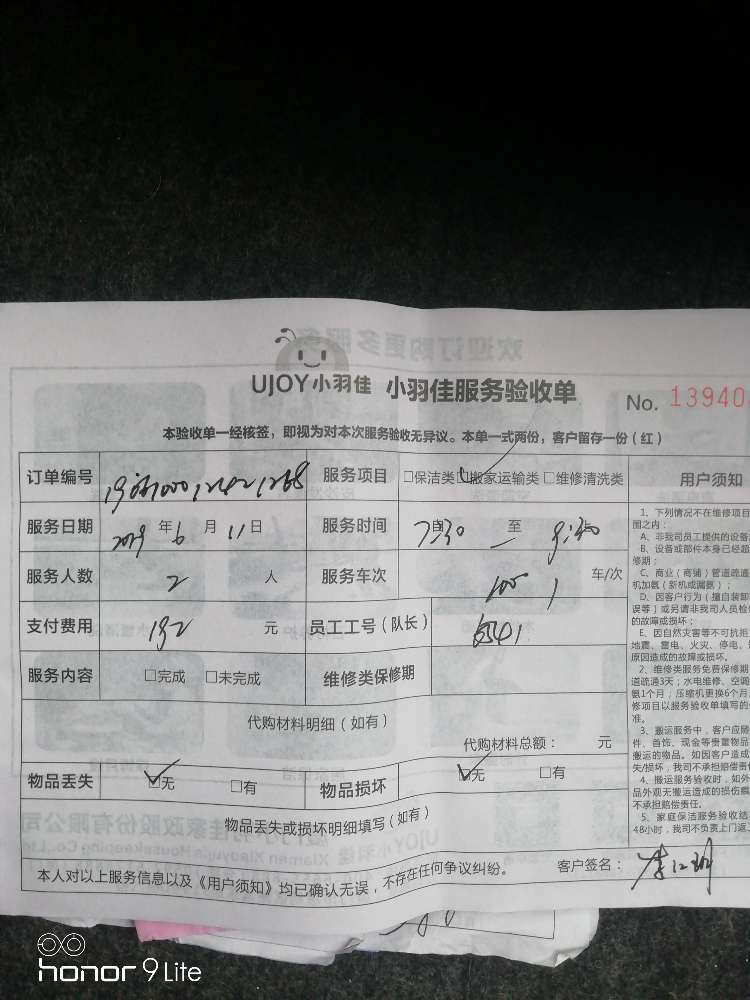 UJOY小羽佳 小羽佳服务验收单 No. 13940
本验收单一经核签，即视为对本次服务验收无异议。本单一式两份，客户留存一份（红）
订单编号 服务项目 □保洁类 ☑搬家运输类 □维修清洗类 用户须知
服务日期 2019 年 6 月 11 日 服务时间 7:30 至 9:30
服务人数 2 人 服务车次 1 车/次
支付费用 192 元 员工工号（队长）
服务内容 □完成 □未完成 维修类保修期
代购材料明细（如有）
代购材料总额： 元
物品丢失 ☑无 □有 物品损坏 ☑无 □有
物品丢失或损坏明细填写（如有）
本人对以上服务信息以及《用户须知》均已确认无误，不存在任何争议纠纷。 客户签名：
1、下列情况不在维修项目
围之内：
A、非我司员工提供的设备
B、设备或部件本身已经超
修期；
C、商业（商铺）管道疏通
机加氨（新机或漏氨）；
D、因客户行为（擅自装卸
误等）或另请非我司人员检
的故障或损坏；
E、因自然灾害等不可抗拒
地震、雷电、火灾、停电、
原因造成的故障或损坏。
2、维修类服务免费保修期
道疏通3天；水电维修、空调
氨1个月；压缩机更换6个月
修项目以服务验收单填写的
准。
3、搬运服务中，客户应随
件、首饰、现金等贵重物品
搬运的物品。如因客户造成
失/损坏，我司不承担赔偿责
4、搬运服务验收时，如外
品外观无搬运造成的损伤
不承担赔偿责任。
5、家庭保洁服务验收结
48小时，我司不负责上门返
honor 9 Lite